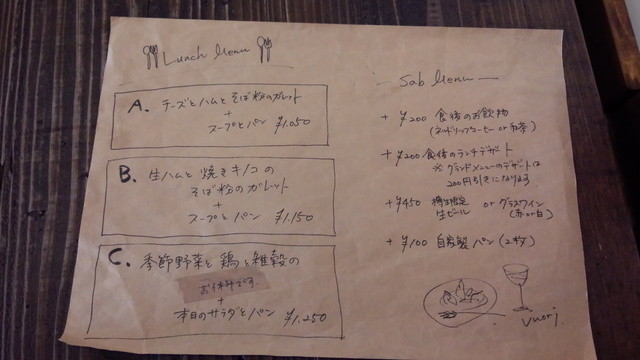 Lunch Menu
A. チーズとハムとそば粉のガレット
+
スープとパン ¥1.050
B. 生ハムと焼きキノコの
そば粉のガレット
+
スープとパン ¥1.150
C. 季節野菜と鶏と雑穀の
お休みです
+
本日のサラダとパン ¥1.250
Sab Menu
+ ¥200 食後のお飲物
(ネルドリップコーヒー or お茶)
+ ¥200 食後のランチデザート
※グランドメニューのデザートは
200円引きになります
+ ¥450
生ビール or グラスワイン
(赤 or 白)
+ ¥100 自家製パン(2枚)
vuori